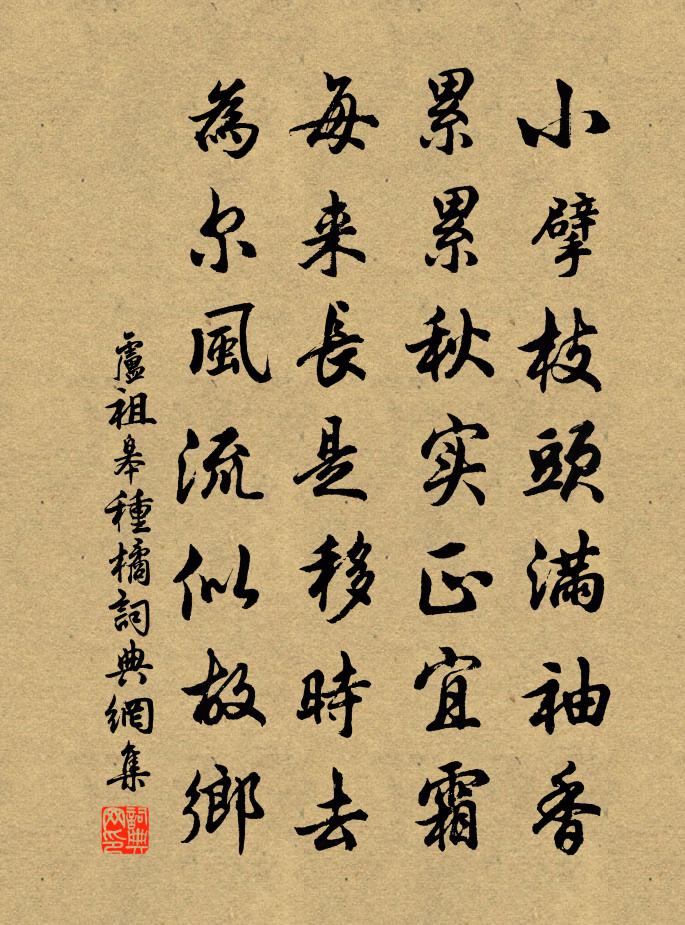 小擘枝頭满袖香
累累秋实正宜霜
每来長是移時去
為尔風流似故鄉
盧祖皋種橘詞典網集
詞典网印